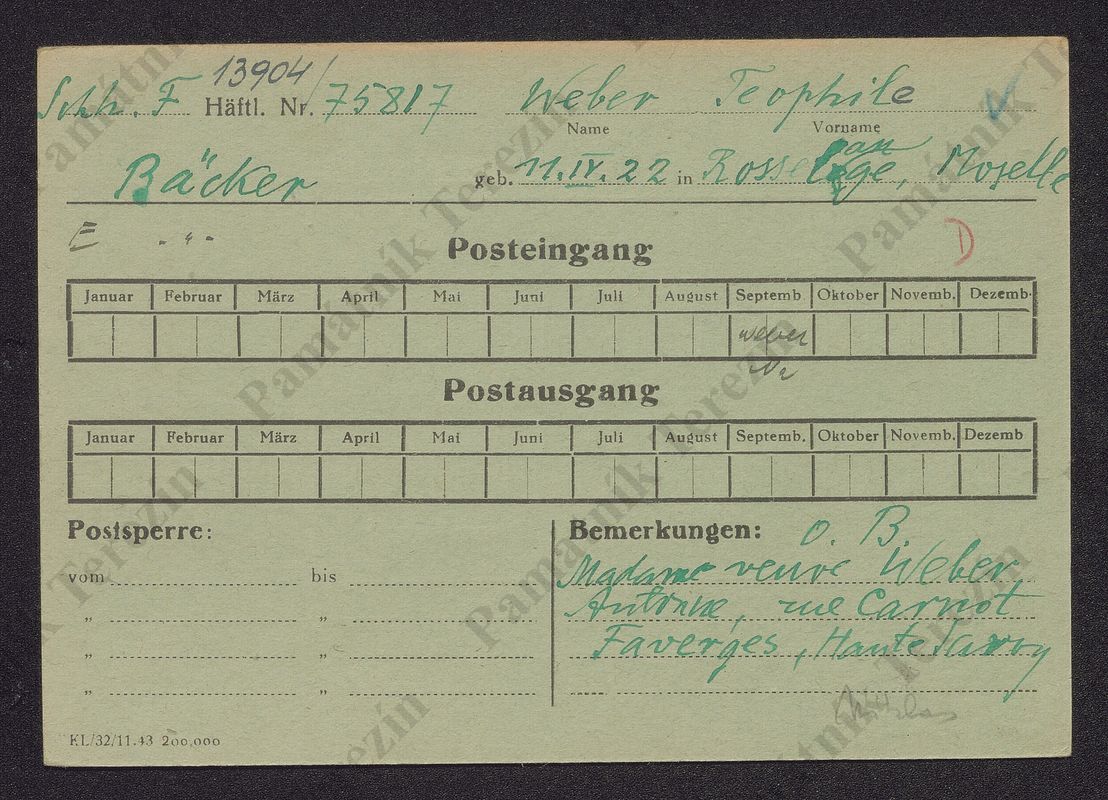 13904/
Sch. F Häftl. Nr. 75817 Weber Teophile
Name Vorname
Bäcker geb. 11.IV.22 in Rosselange, Moselle
E - " -
Posteingang
D
Januar Februar März April Mai Juni Juli August Septemb Oktober Novemb. Dezemb.
Weber
Postausgang
Januar Februar März April Mai Juni Juli August Septemb. Oktober Novemb. Dezemb
Postsperre: Bemerkungen: O. B.
vom bis Madame veuve Weber
„ „ rue Carnot
„ „ Faverges, Haute Savoy
„ „
KL/32/11.43 200.000
Památník Terezín